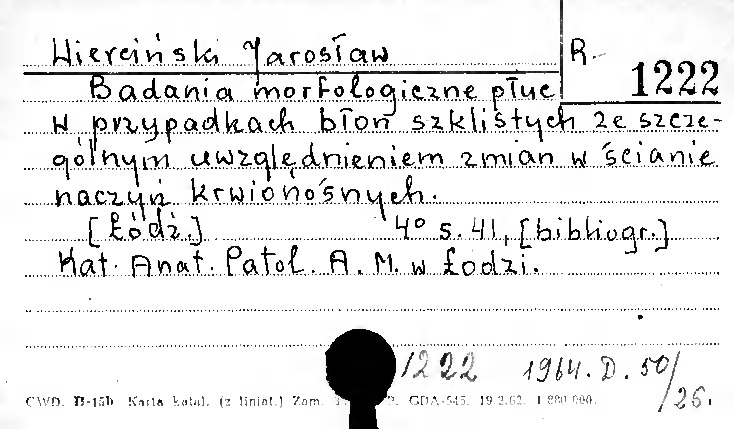 Wierciński Jarosław
R. 1222
Badania morfologiczne płuc
w przypadkach błon szklistych ze szcze-
gólnym uwzględnieniem zmian w ścianie
naczyń krwionośnych.
[Łódź.] 4° s. 41, [bibliogr.]
Kat. Anat. Patol. A. M. w Łodzi.
1222 1964. D. 50/26.
CWD. D-15b Karta katal. (z liniat.) Zam. GDA-545. 19.2.62. 1 880 000.